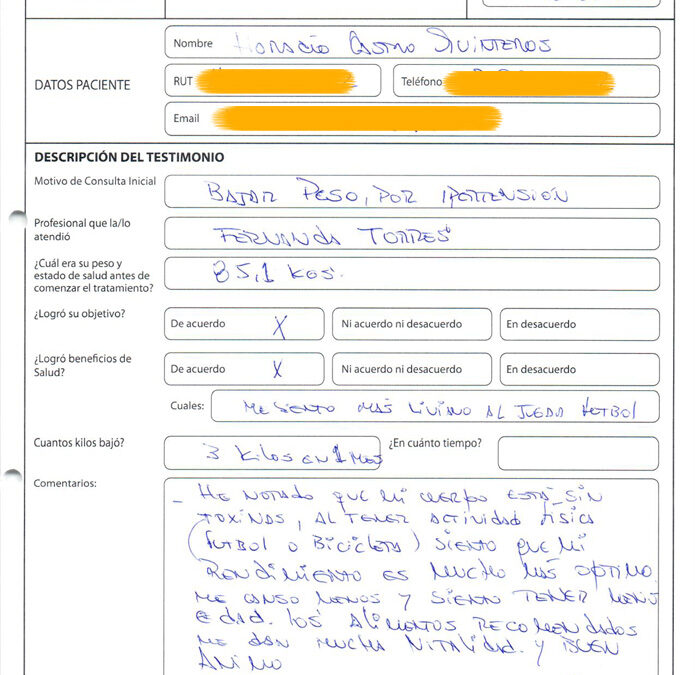 Nombre Horacio Castro Quinteros
DATOS PACIENTE
RUT
Teléfono
Email
DESCRIPCIÓN DEL TESTIMONIO
Motivo de Consulta Inicial BAJAR PESO, POR IPERTENSIÓN
Profesional que la/lo
atendió FERNANDA TORRES
¿Cuál era su peso y
estado de salud antes de
comenzar el tratamiento? 85,1 KGS.
¿Logró su objetivo? De acuerdo X Ni acuerdo ni desacuerdo En desacuerdo
¿Logró beneficios de
Salud? De acuerdo X Ni acuerdo ni desacuerdo En desacuerdo
Cuales: ME SIENTO MÁS LIVIANO AL JUGAR FUTBOL
Cuantos kilos bajó? 3 KILOS EN 1 MES ¿En cuánto tiempo?
Comentarios:
- HE NOTADO QUE MI CUERPO ESTÁ SIN
TOXINAS, AL TENER ACTIVIDAD FÍSICA
(FUTBOL O BICICLETA) SIENTO QUE MI
RENDIMIENTO ES MUCHO MÁS OPTIMO.
ME CANSO MENOS Y SIENTO TENER MENOS
EDAD. LOS ALIMENTOS RECOMENDADOS
ME DAN MUCHA VITALIDAD. Y BUEN
ANIMO